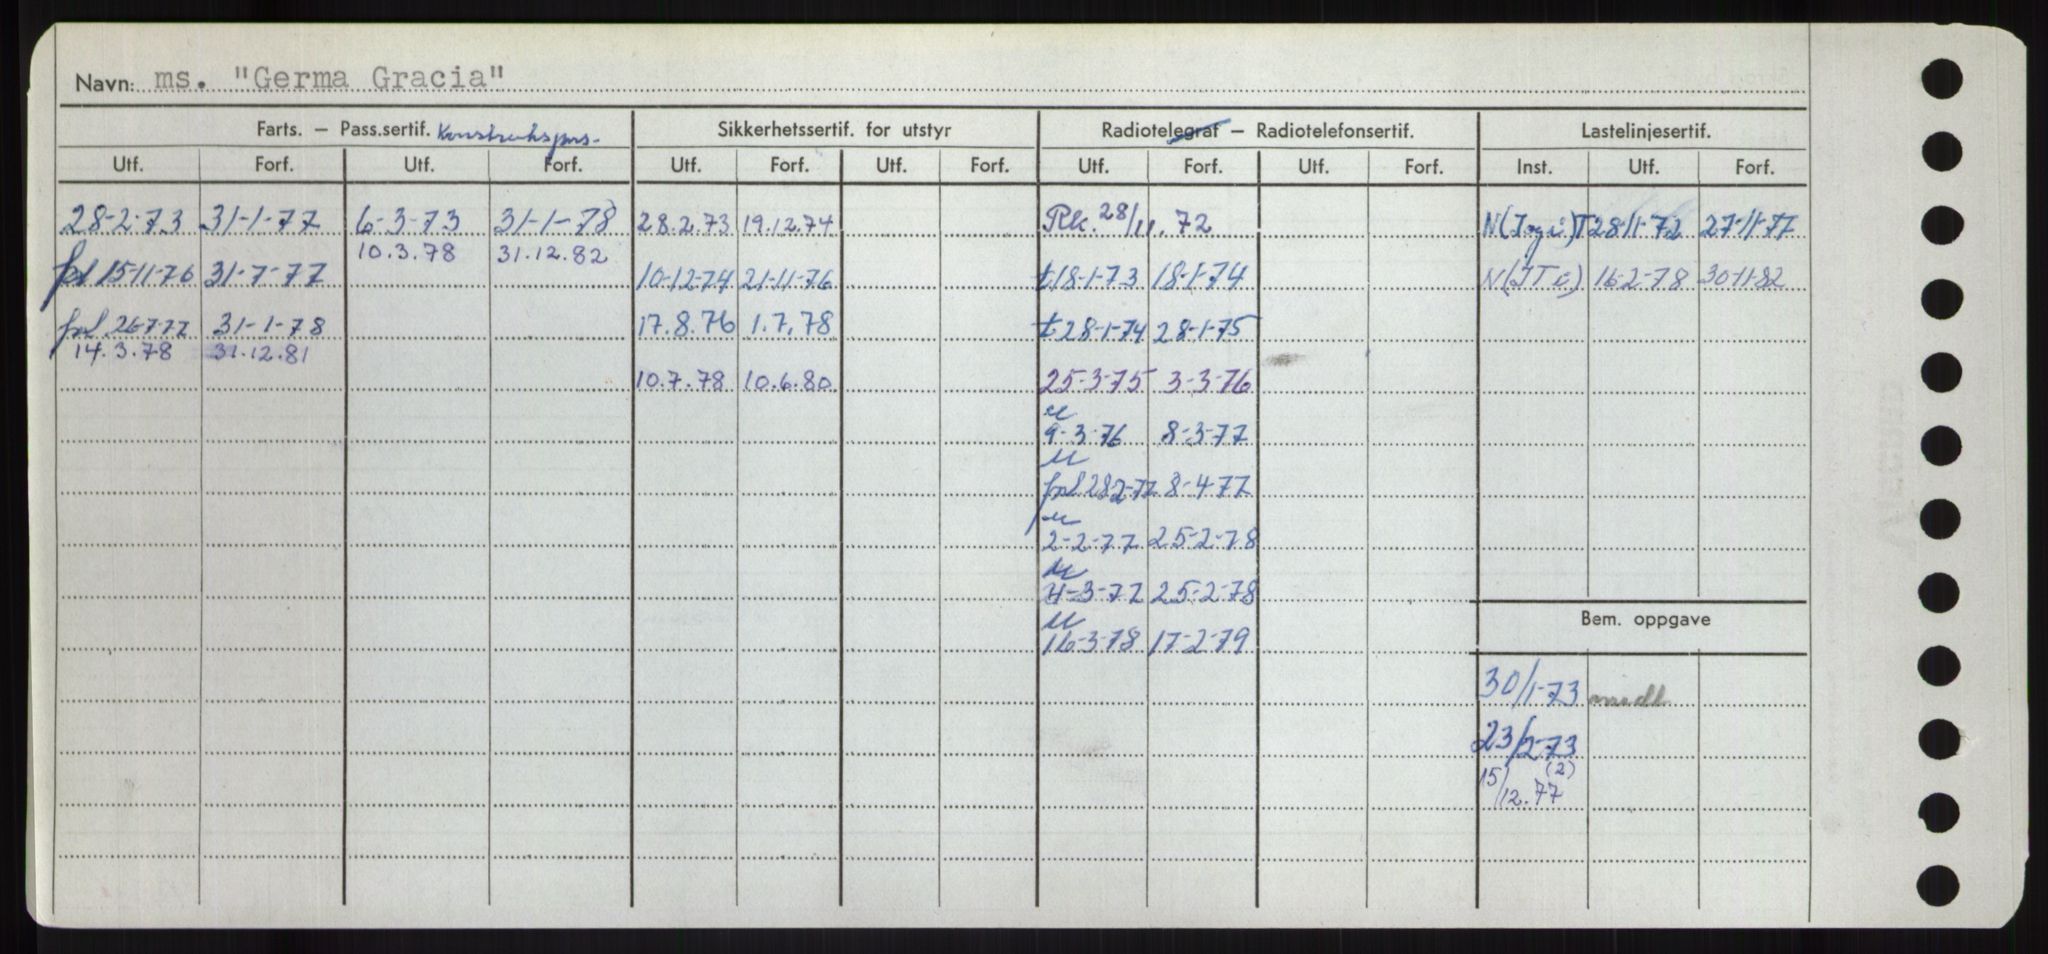 Navn: ms. "Germa Gracia"
Farts. – Pass.sertif. Sikkerhetssertif. for utstyr Radiotelegraf – Radiotelefonsertif. Lastelinjesertif.
Utf. Forf. Utf. Forf. Utf. Forf. Utf. Forf. Utf. Forf. Utf. Forf. Inst. Utf. Forf.
28-2-73 31-1-77 6-3-73 31-1-78 28.2.73 19.12.74 28/11.72 28-11-72 27-11-77
10.3.78 31.12.82
fol 15-11-76 31-7-77 10-12-74 21-11-76 t 18-1-73 18-1-74 16-2-78 30-11-82
fol 26-7-77 31-1-78 17.8.76 1.7.78 t 28-1-74 28-1-75
14.3.78 31.12.81
10.7.78 10.6.80 25-3-75 3-3-76
u
9-3-76 8-3-77
u
fol 28-2-77 8-4-77
u
2-2-77 25-2-78
u
4-3-77 25-2-78
Bem. oppgave
u
16-3-78 17-2-79
30/1-73 midl
23/2-73
(2)
15/12.77